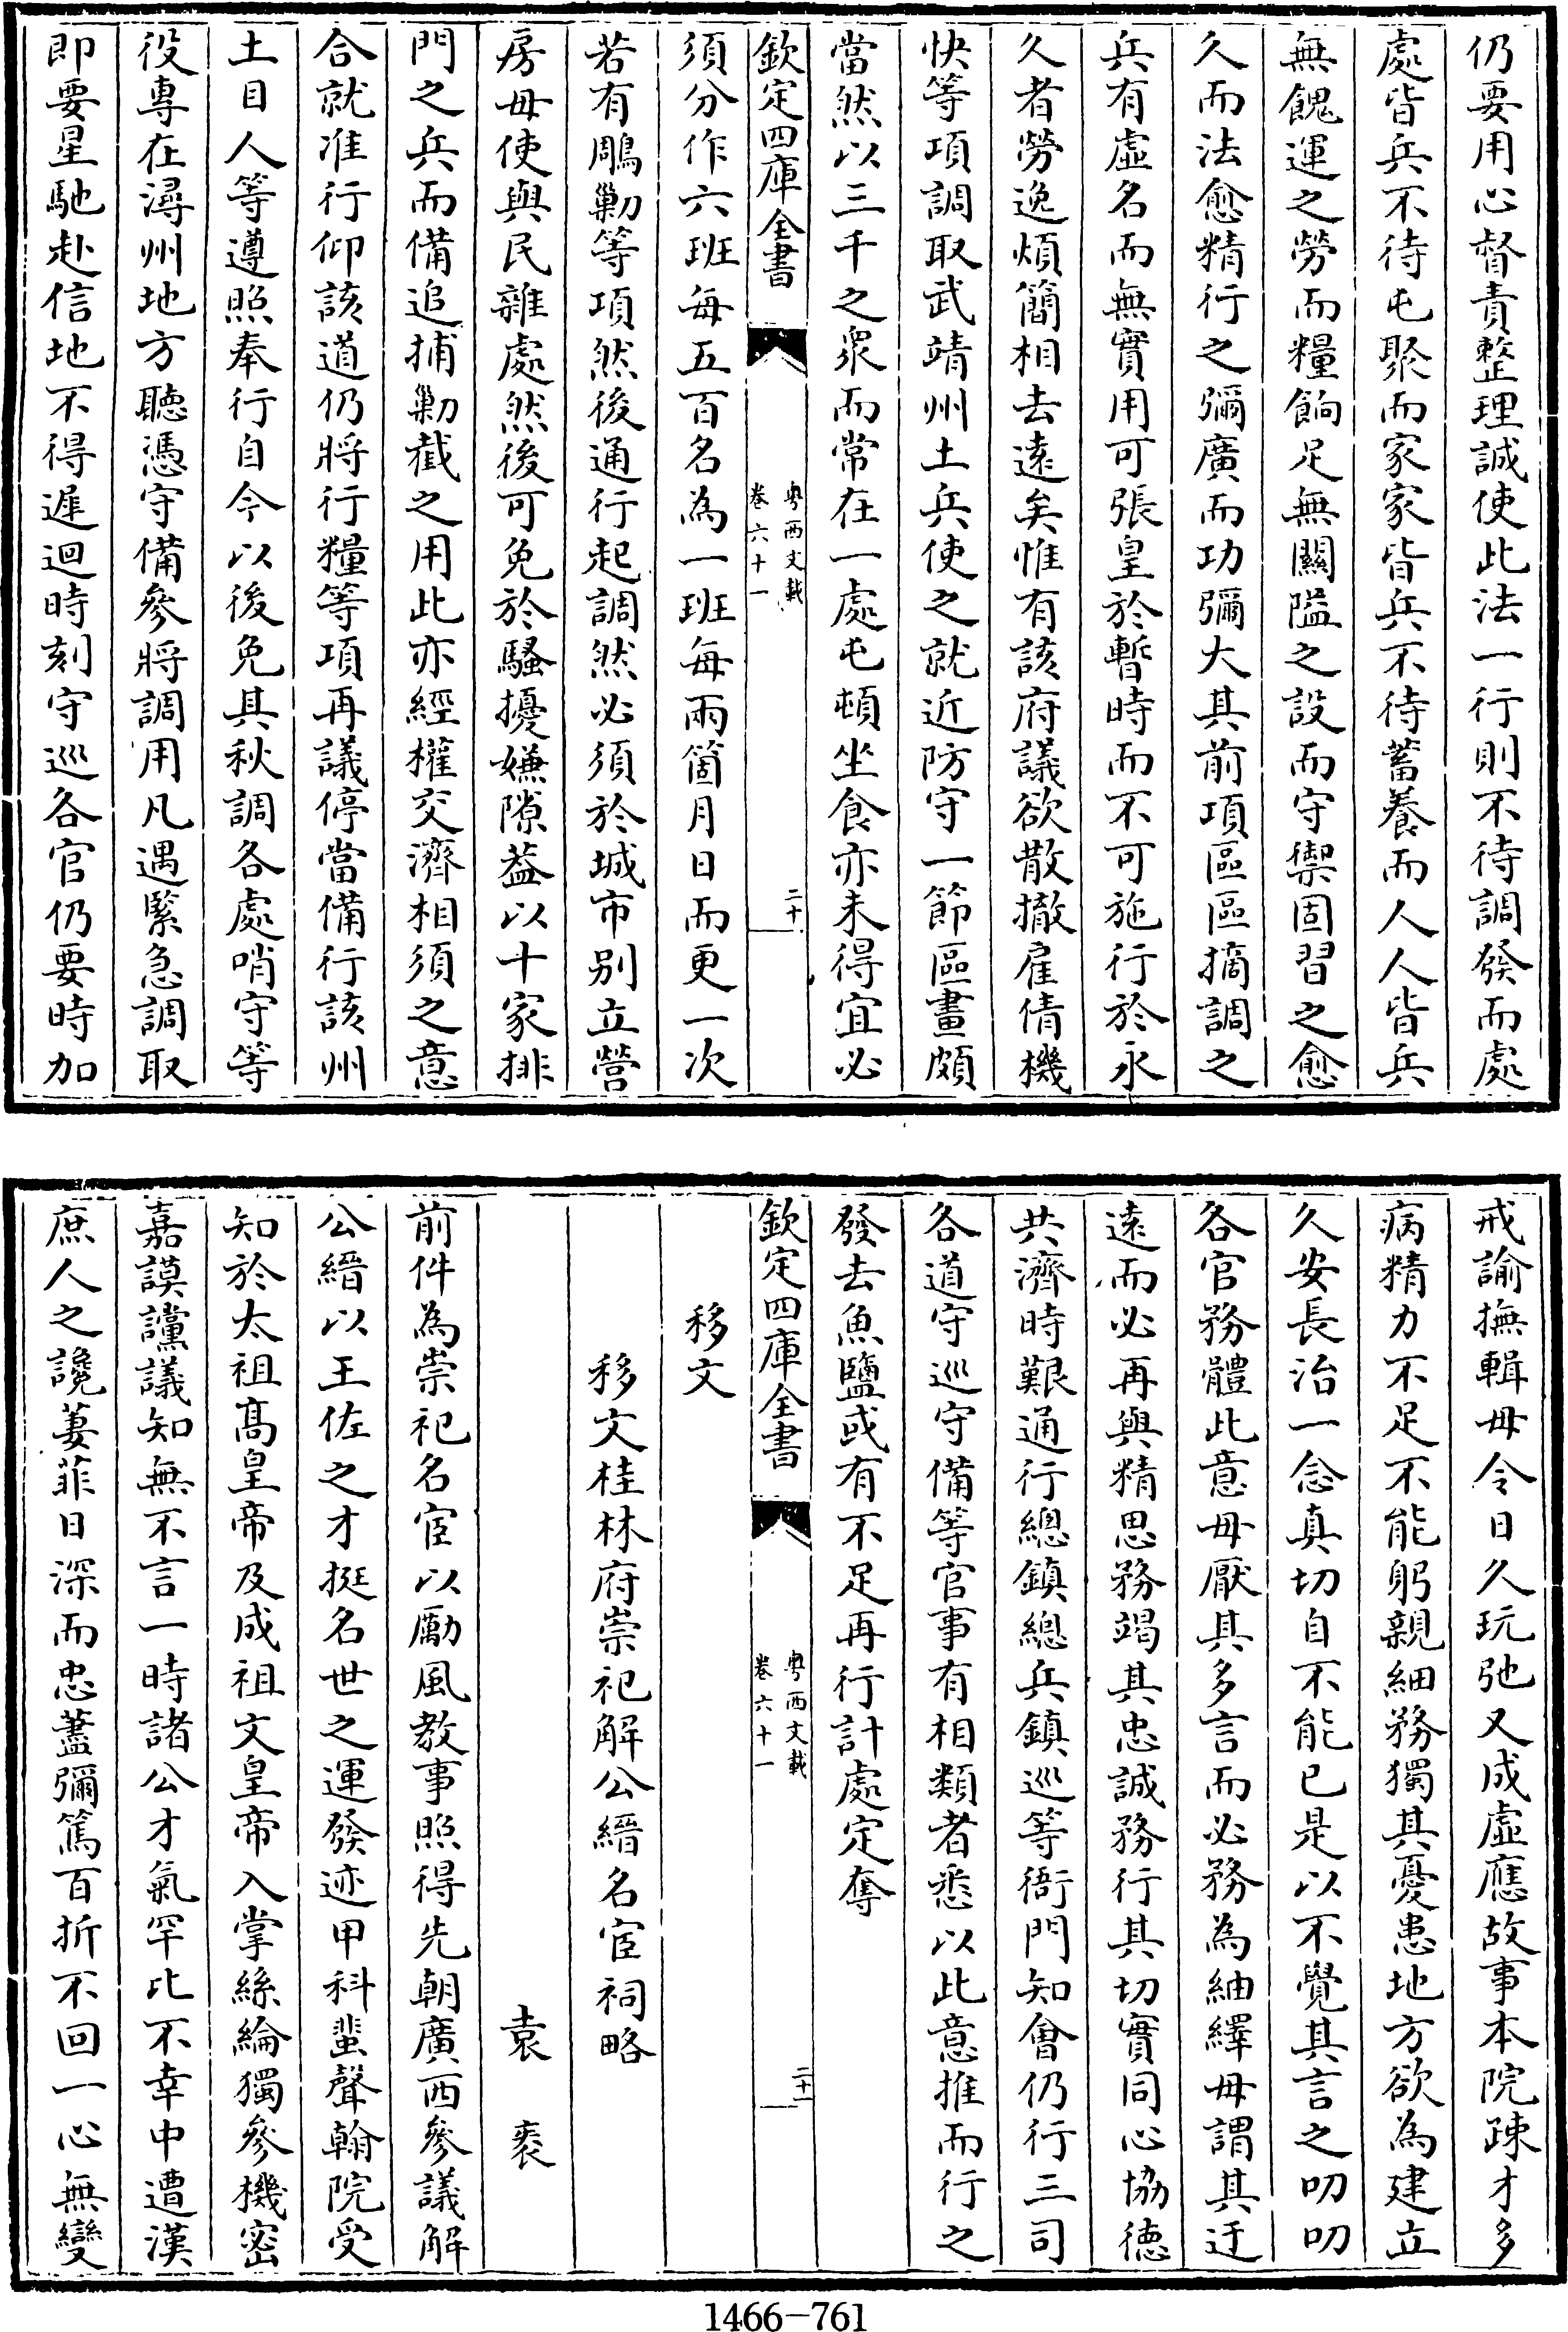 仍要用心督責整理誠使此法一行則不待調發而處
處皆兵不待屯聚而家家皆兵不待蓄養而人人皆兵
無餽運之勞而糧餉足無關隘之設而守禦固習之愈
久而法愈精行之彌廣而功彌大其前項區區摘調之
兵有虛名而無實用可張皇於暫時而不可施行於永
久者勞逸煩簡相去遠矣惟有該府議欲散撤雇倩機
快等項調取武靖州土兵使之就近防守一節區畫頗
當然以三千之衆而常在一處屯頓坐食亦未得宜必
欽定四庫全書
粤西文載
卷六十一
二十
須分作六班每五百名為一班每兩箇月日而更一次
若有鵰勦等項然後通行起調然必須於城市別立營
房毋使與民雜處然後可免於騷擾嫌隙葢以十家排
門之兵而備追捕勦截之用此亦經權交濟相須之意
合就准行仰該道仍將行糧等項再議停當備行該州
土目人等遵照奉行自今以後免其秋調各處哨守等
役專在潯州地方聽憑守備參將調用凡遇緊急調取
即要星馳赴信地不得遲迴時刻守巡各官仍要時加
戒諭撫輯毋令日久玩弛又成虛應故事本院疎才多
病精力不足不能躬親細務獨其憂患地方欲為建立
久安長治一念真切自不能已是以不覺其言之叨叨
各官務體此意毋厭其多言而必務為紬繹毋謂其迂
遠而必再與精思務竭其忠誠務行其切實同心協德
共濟時艱通行總鎮總兵鎮巡等衙門知會仍行三司
各道守巡守備等官事有相類者悉以此意推而行之
發去魚鹽或有不足再行計處定奪
欽定四庫全書
粤西文載
卷六十一
二十一
移文
移文桂林府崇祀解公縉名宦祠略
袁袠
前件為崇祀名宦以勵風教事照得先朝廣西參議解
公縉以王佐之才挺名世之運發迹甲科蜚聲翰院受
知於太祖高皇帝及成祖文皇帝入掌絲綸獨參機密
嘉謨讜議知無不言一時諸公才氣罕比不幸中遭漢
庶人之讒萋菲日深而忠藎彌篤百折不回一心無變
1466-761